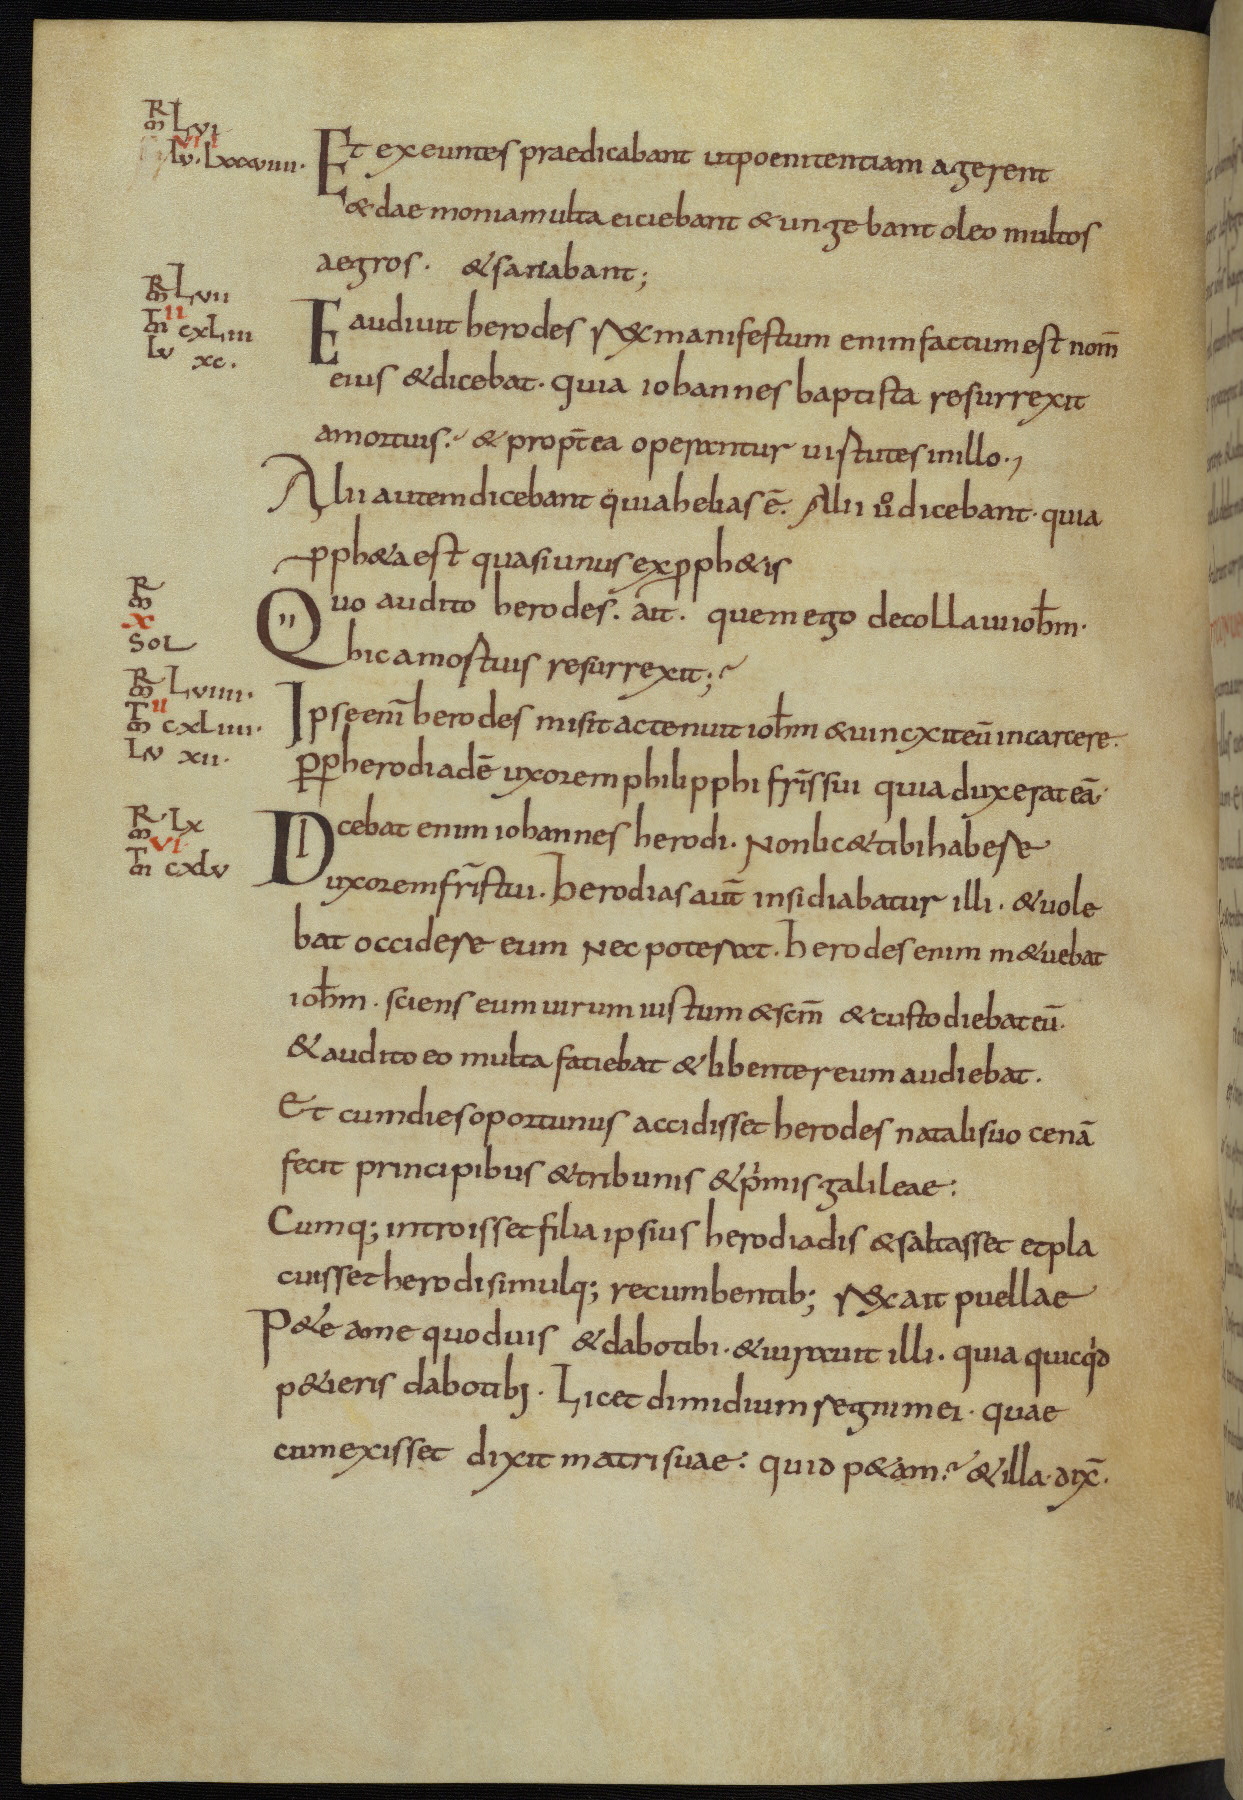 MR LVI
VIII
LV · LXXXVIIII ·
Et exeuntes praedicabant ut poenitentiam agerent
& daemonia multa eiciebant & ungebant oleo multos
aegros · & sanabant ;
MR LVII
II
MT CXLIII
LV XC ·
Et audiuit herodes rex manifestum enim factum est nom̅
eius & dicebat · quia iohannes baptista resurrexit
amortuis · & propt̅ea operantur uirtutes inillo ·,
Alii autem dicebant quia helias e̅ · Alii ů dicebant · quia
ꝓph&a est quasi unus ex ꝓph&is
MR
X
SOL
Quo audito herodes · ait · quem ego decollaui ioh̅m ·
hic amortuis resurrexit ;
MR LVIIII ·
II
MT CXLIIII ·
LV XII ·
Ipse eni̅ herodes misit ac tenuit ioh̅m & uincxit eu̅ incarcere ·
ꝓꝑ herodiade̅ uxorem philipphi fr̅is sui quia duxerat ea̅ ·
MR · LX
VI
MT CXLV
Dicebat enim iohannes herodi · Non lic& tibi habere
uxorem fr̅is tui · Herodias aut̅ insidiabatur illi · & uole
bat occidere eum nec poterat · Herodes enim m&uebat
ioh̅m · sciens eum uirum iustum & sc̅m & custodiebat eu̅ ·
& audito eo multa fatiebat & libenter eum audiebat ·
Et cum dies oportunus accidisset herodes natali suo cena̅
fecit principibus & tribunis & p'mis galileae :
Cumq; introisset filia ipsius herodiadis & saltasset et pla
cuisset herodi simulq; recumbentib; rex ait puellae
P&e a me quod uis & dabo tibi · & iurauit illi · quia quicq'd
p&ieris dabo tibi · Licet dimidium regni mei · quae
cum exisset dixit matri suae : quid p&am · & illa dix̅ ·